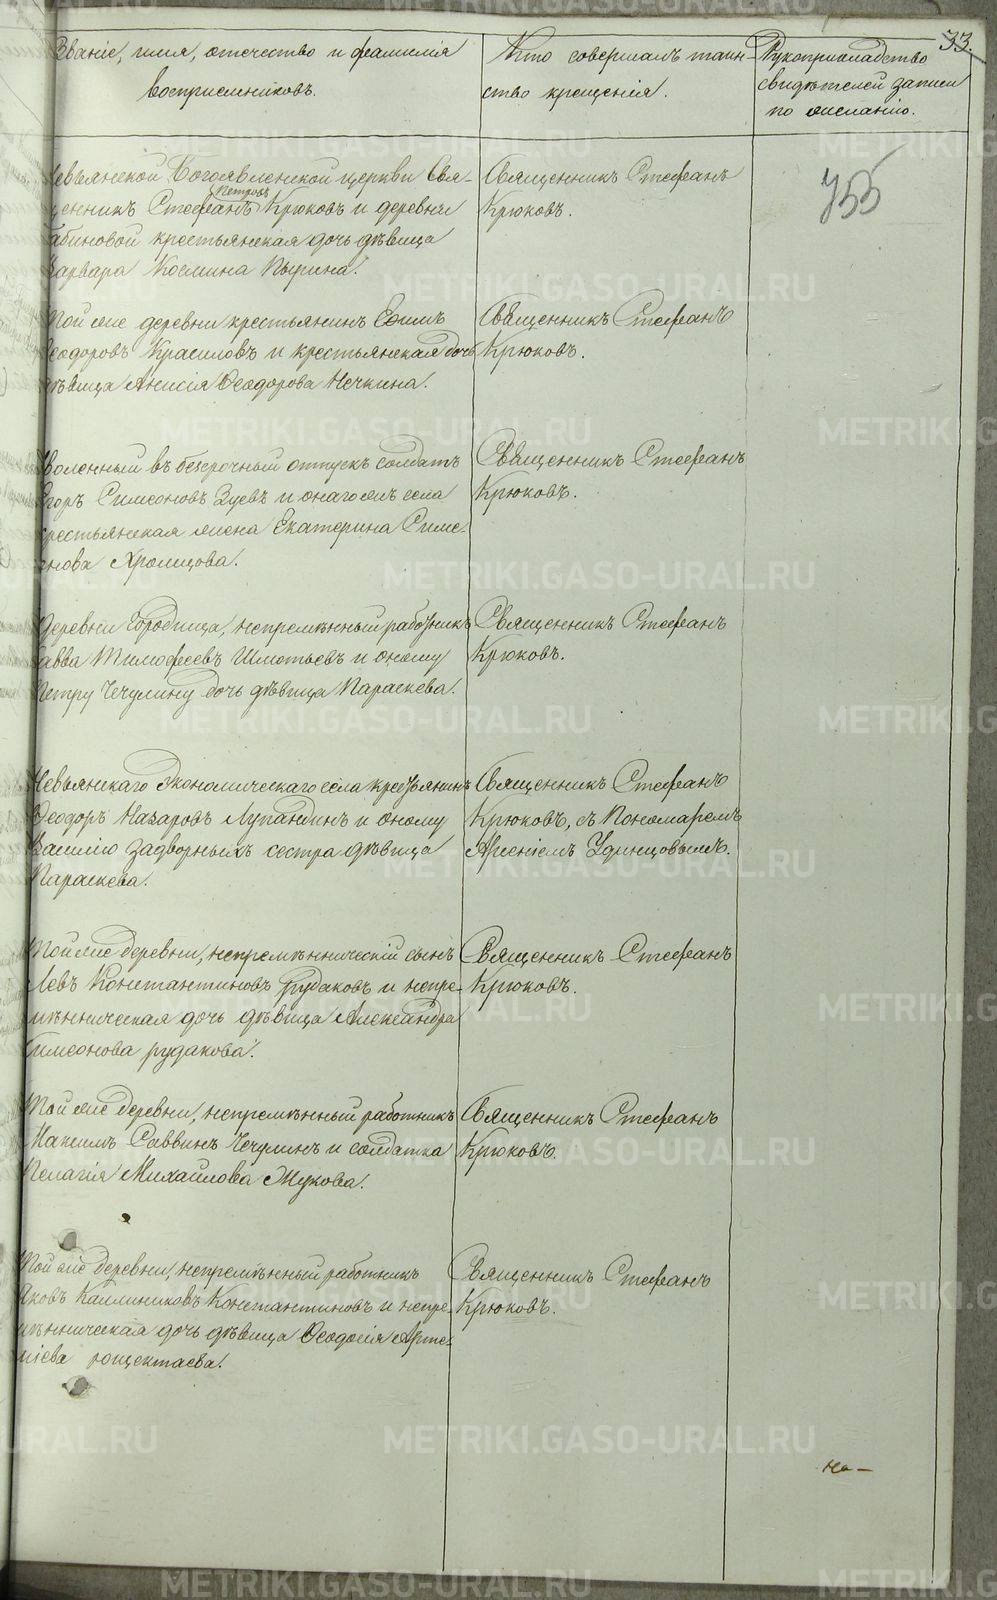 33.
Званіе, имя, отечество и фамилія
воспріемниковъ.
Кто совершалъ таин-
ство крещенія.
Рукоприкладство
свидѣтелей записи
по желанію.
755
Невьянской Богоявленской церкви Свя-
щенникъ Стефанъ Петровъ Крюковъ и деревни
крестьянская дочь дѣвица
Варвара Космина Пырина.
Священникъ Стефанъ
Крюковъ.
Той же деревни крестьянинъ Ефимъ
Ѳеодоровъ Красиловъ и крестьянская дочь
дѣвица Анисія Ѳеодорова Нечкина.
Священникъ Стефанъ
Крюковъ.
Уволенный въ безсрочный отпускъ солдатъ
Егоръ Симеоновъ Зуевъ и онагожъ села
крестьянская жена Екатерина Симе-
онова Хромцова.
Священникъ Стефанъ
Крюковъ.
Деревни Городища, непремѣнный работникъ
Савва Тимофеевъ Шмотьевъ и оному
Петру Чечулину дочь дѣвица Параскева.
Священникъ Стефанъ
Крюковъ.
Невьянскаго Экономическаго села крестьянинъ
Ѳеодоръ Назаровъ Лупандинъ и оному
Василію Задворныхъ сестра дѣвица
Параскева.
Священникъ Стефанъ
Крюковъ, съ Пономаремъ
Арсеніемъ Удинцовымъ.
Той же деревни, непремѣнническій сынъ
Левъ Константиновъ Рудаковъ и непре-
мѣнническая дочь дѣвица Александра
Симеонова Рудакова.
Священникъ Стефанъ
Крюковъ.
Той же деревни, непремѣнный работникъ
Максимъ Саввинъ Чечулинъ и солдатка
Пелагія Михайлова Жукова.
Священникъ Стефанъ
Крюковъ.
Той же деревни, непремѣнный работникъ
Яковъ Каллиниковъ Константиновъ и непре-
мѣнническая дочь дѣвица Ѳеодосія Арте-
міева Рощектаева.
Священникъ Стефанъ
Крюковъ.
На-
METRIKI.GASO-URAL.RU